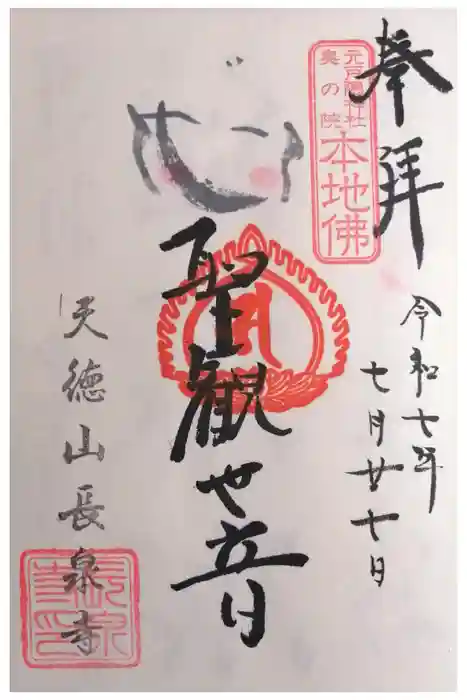 奉拝
令和七年
七月廿七日
元戸隠神社
奥の院
本地佛
聖観世音
天徳山長泉寺
長泉寺印